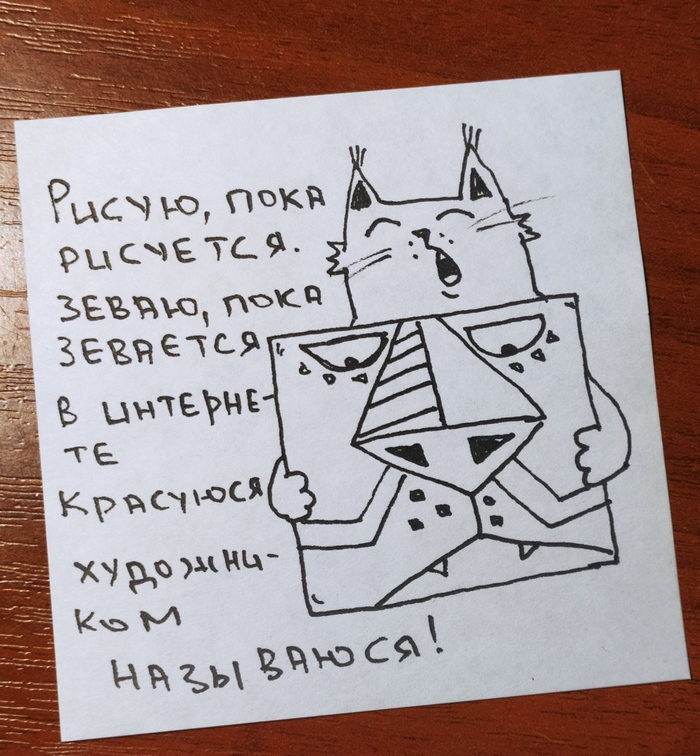 Рисую, пока
рисуется.
Зеваю, пока
зевается
в интерне-
те
красуюся
художни-
ком
называюся!